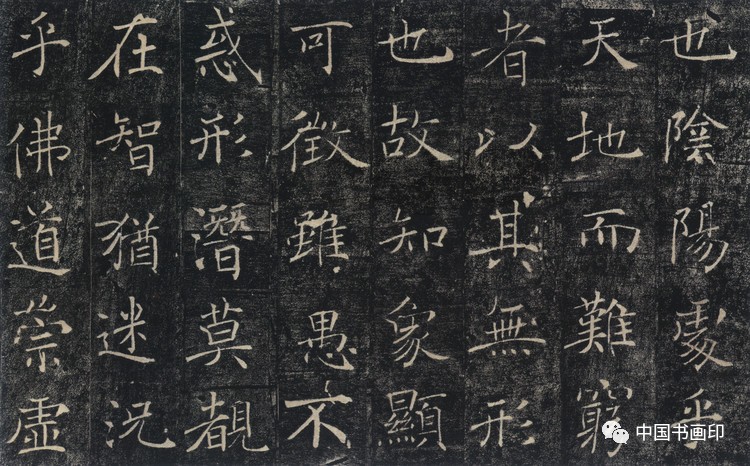 也陰陽處乎
天地而難窮
者以其無形
也故知象顯
可徵雖愚不
惑形潛莫覩
在智猶迷況
乎佛道崇虛
中国书画印